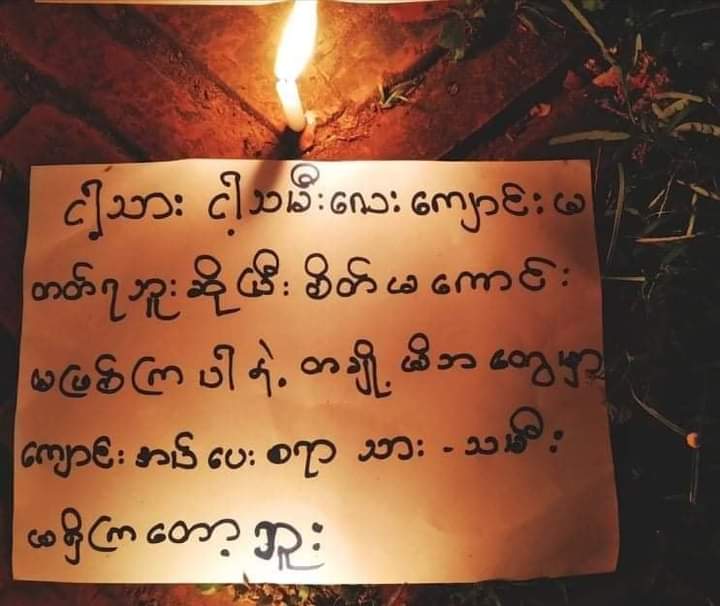 ငါ့သား ငါ့သမီးလေး ကျောင်း မ
တတ်ရဘူး ဆိုပြီး စိတ် မ ကောင်း
မဖြစ်ကြ ပါ နဲ့. တချို့ မိဘ တွေမှာ
ကျောင်း အပ် ပေး စရာ သား - သမီး
မရှိကြ တော့ ဘူး